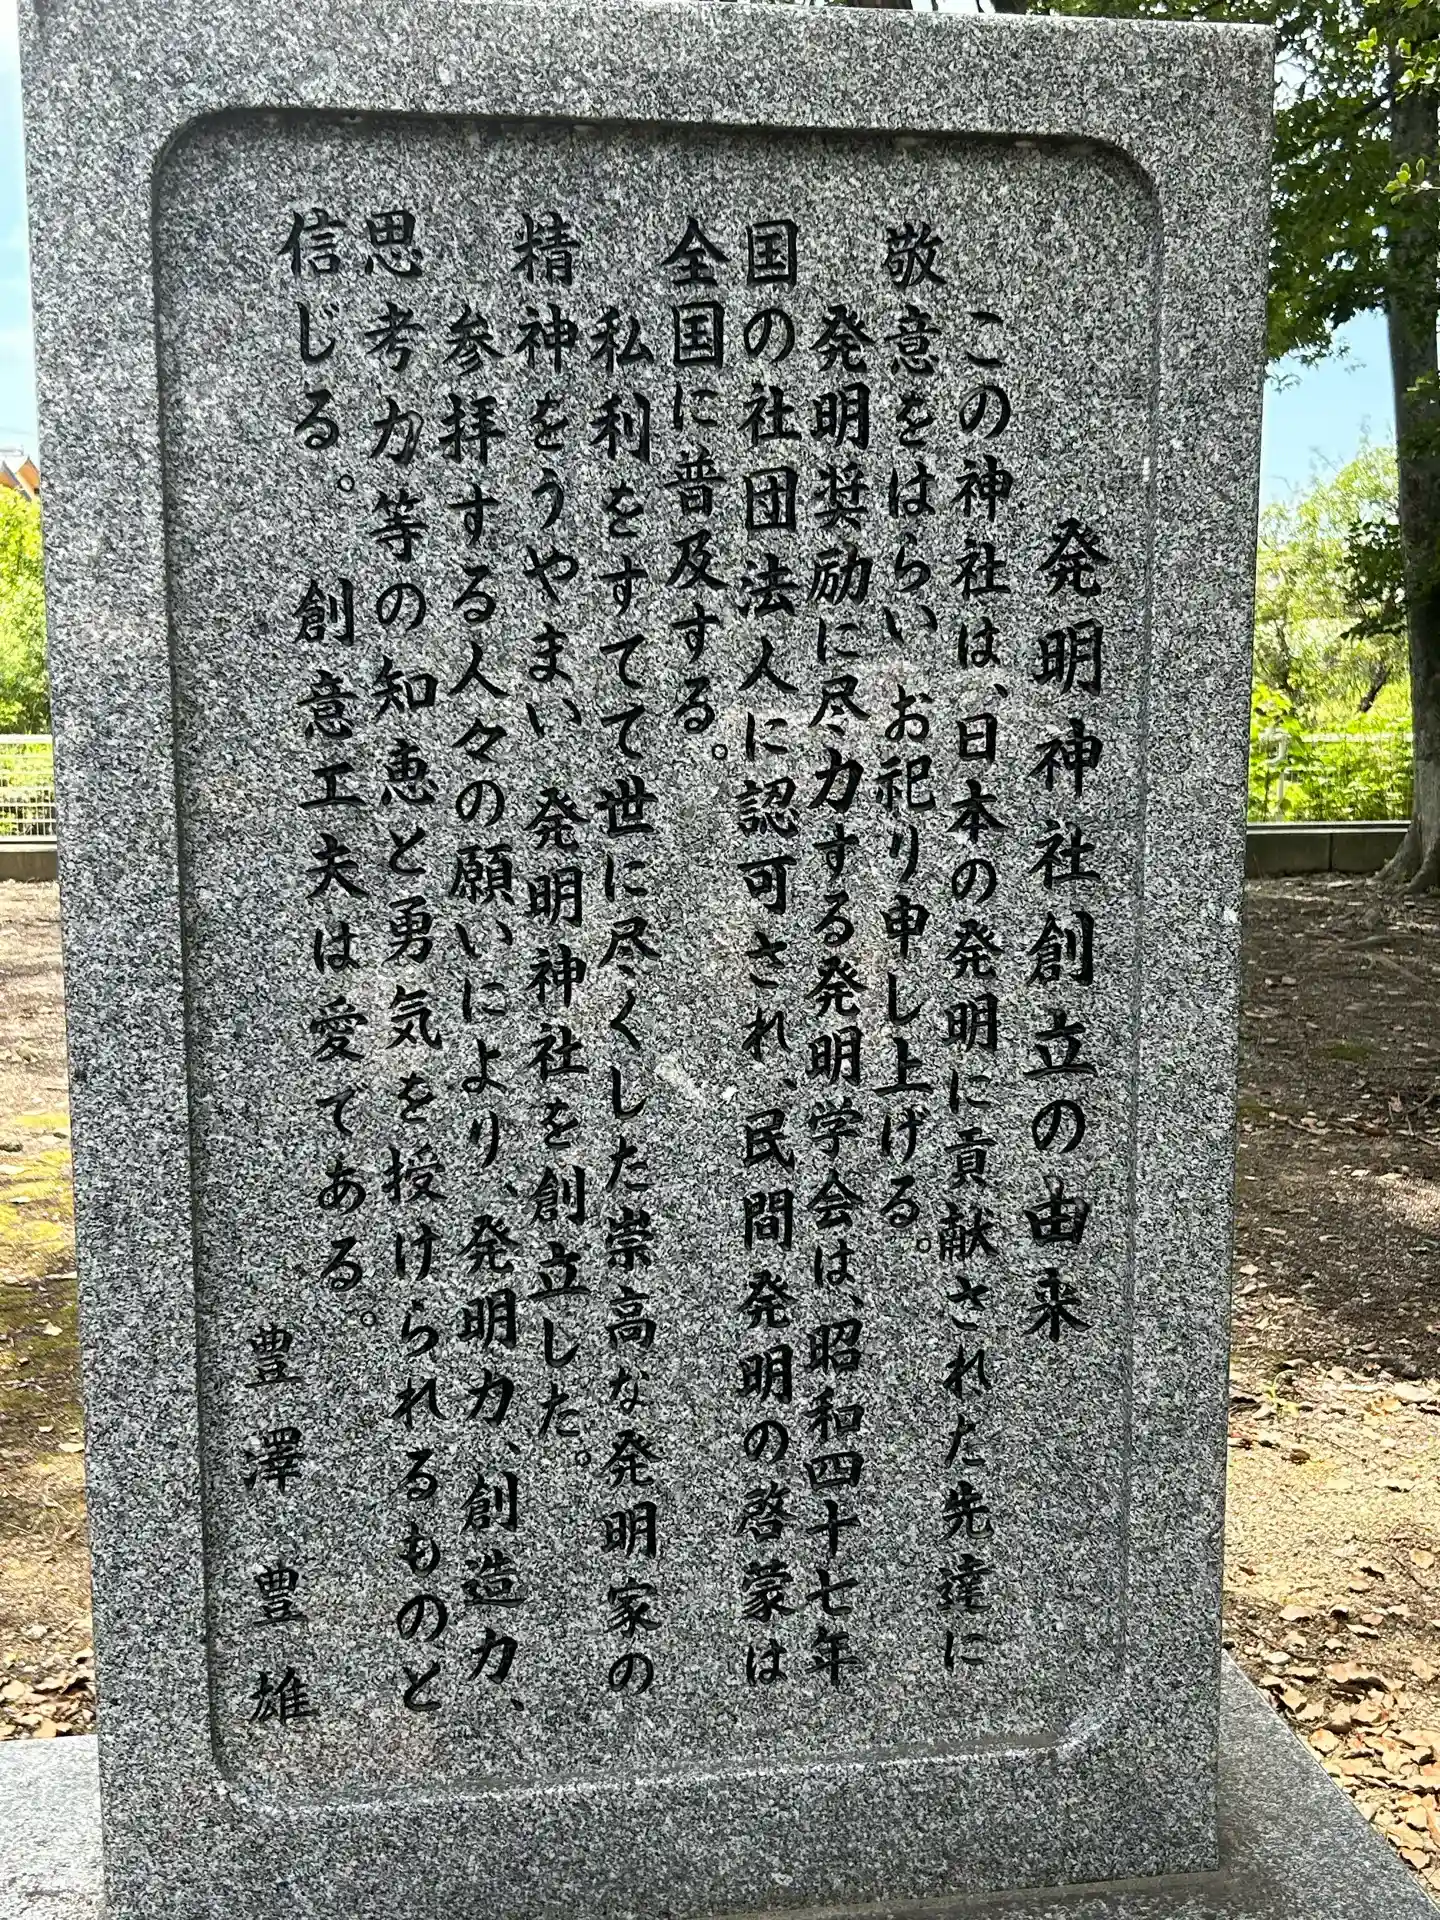 発明神社創立の由来
この神社は、日本の発明に貢献された先達に
敬意をはらい お祀り申し上げる。
発明奨励に尽力する発明学会は、昭和四十七年
国の社団法人に認可され、民間発明の啓蒙は
全国に普及する。
私利をすてて世に尽くした崇高な発明家の
精神をうやまい 発明神社を創立した。
参拝する人々の願いにより、発明力、創造力、
思考力等の知恵と勇気を授けられるものと
信じる。 創意工夫は愛である。
豊澤豊雄